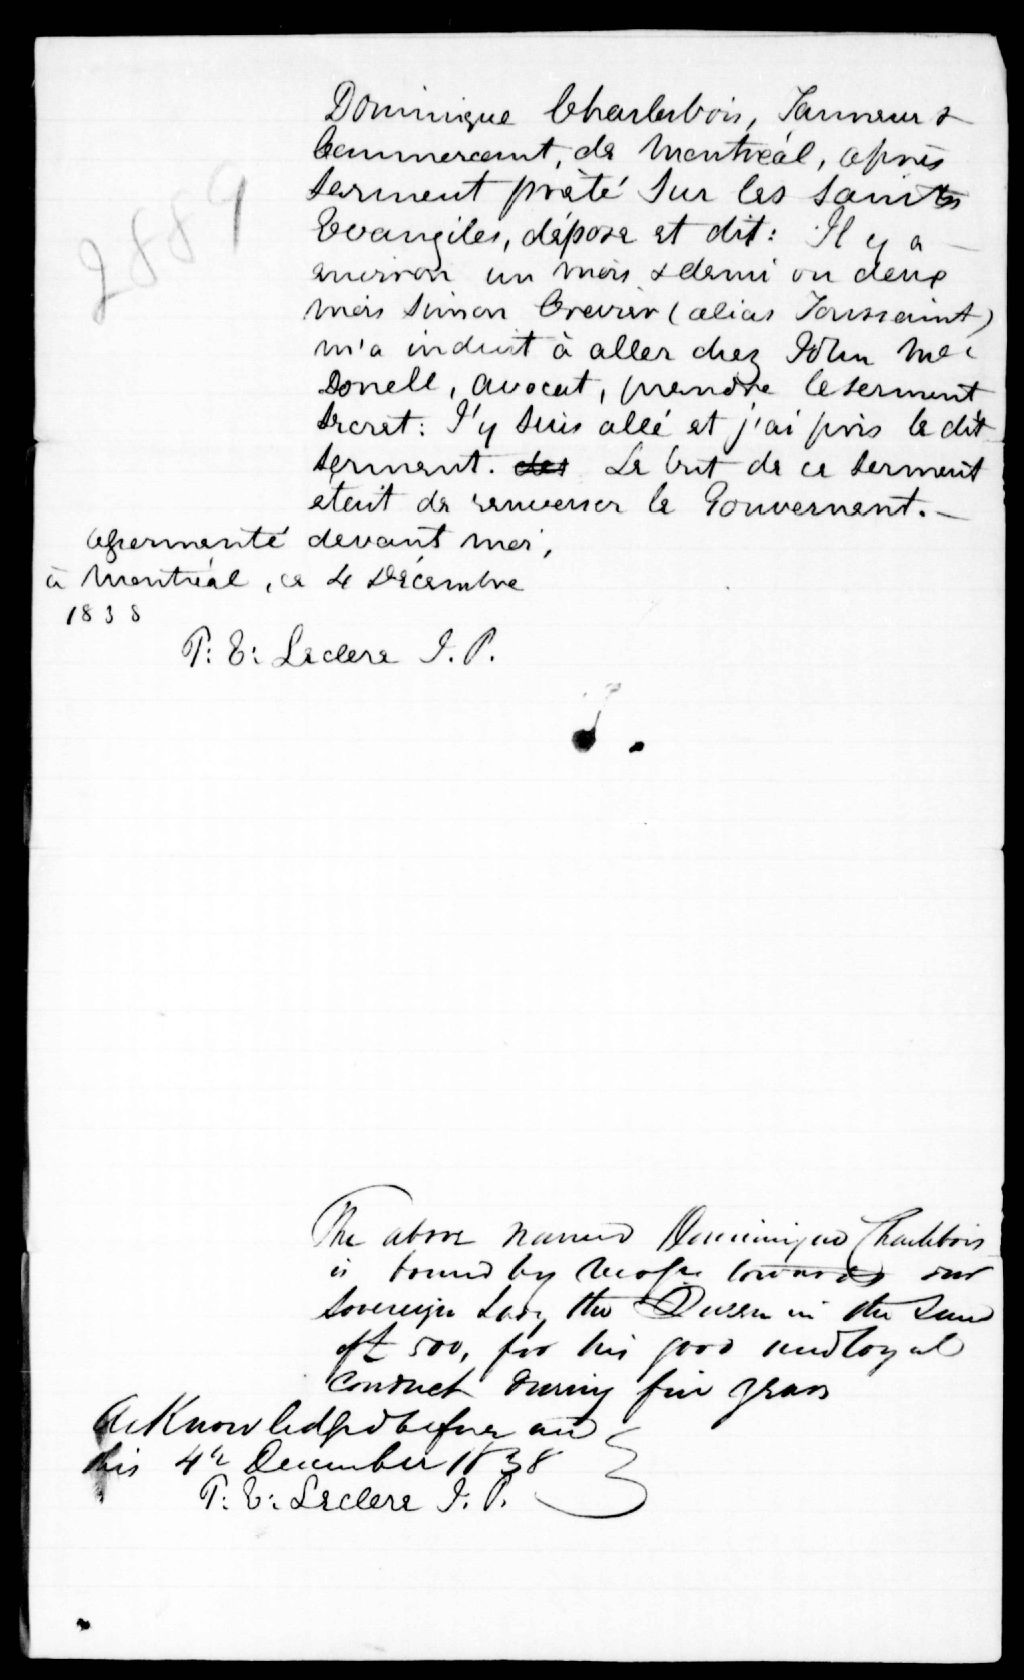 2889
Dominique Charlebois, Tanneur &
Commercant, de Montréal, après
serment prêté sur les saints
Evangiles, dépose et dit: Il y a —
environ un mois & demi ou deux
mois Simon Crevier (alias Toussaint)
m'a induit à aller chez John Mc
Donell, avocat, prendre le serment
secret: J'y suis allé et j'ai pris le dit
serment. des Le but de ce serment
etait de renverser le Gouvernement. —
Assermenté devant moi,
à Montréal, ce 4 Décembre
1838
P: E: Leclere J. P.
The above named Dominique Charlebois
is bound by towards our
Sovereign Lady the Queen in the Sum
of £ 500, for his good and loyal
Conduct during five years
Acknowledged before me
this 4th December 1838
P: E: Leclere J. P.